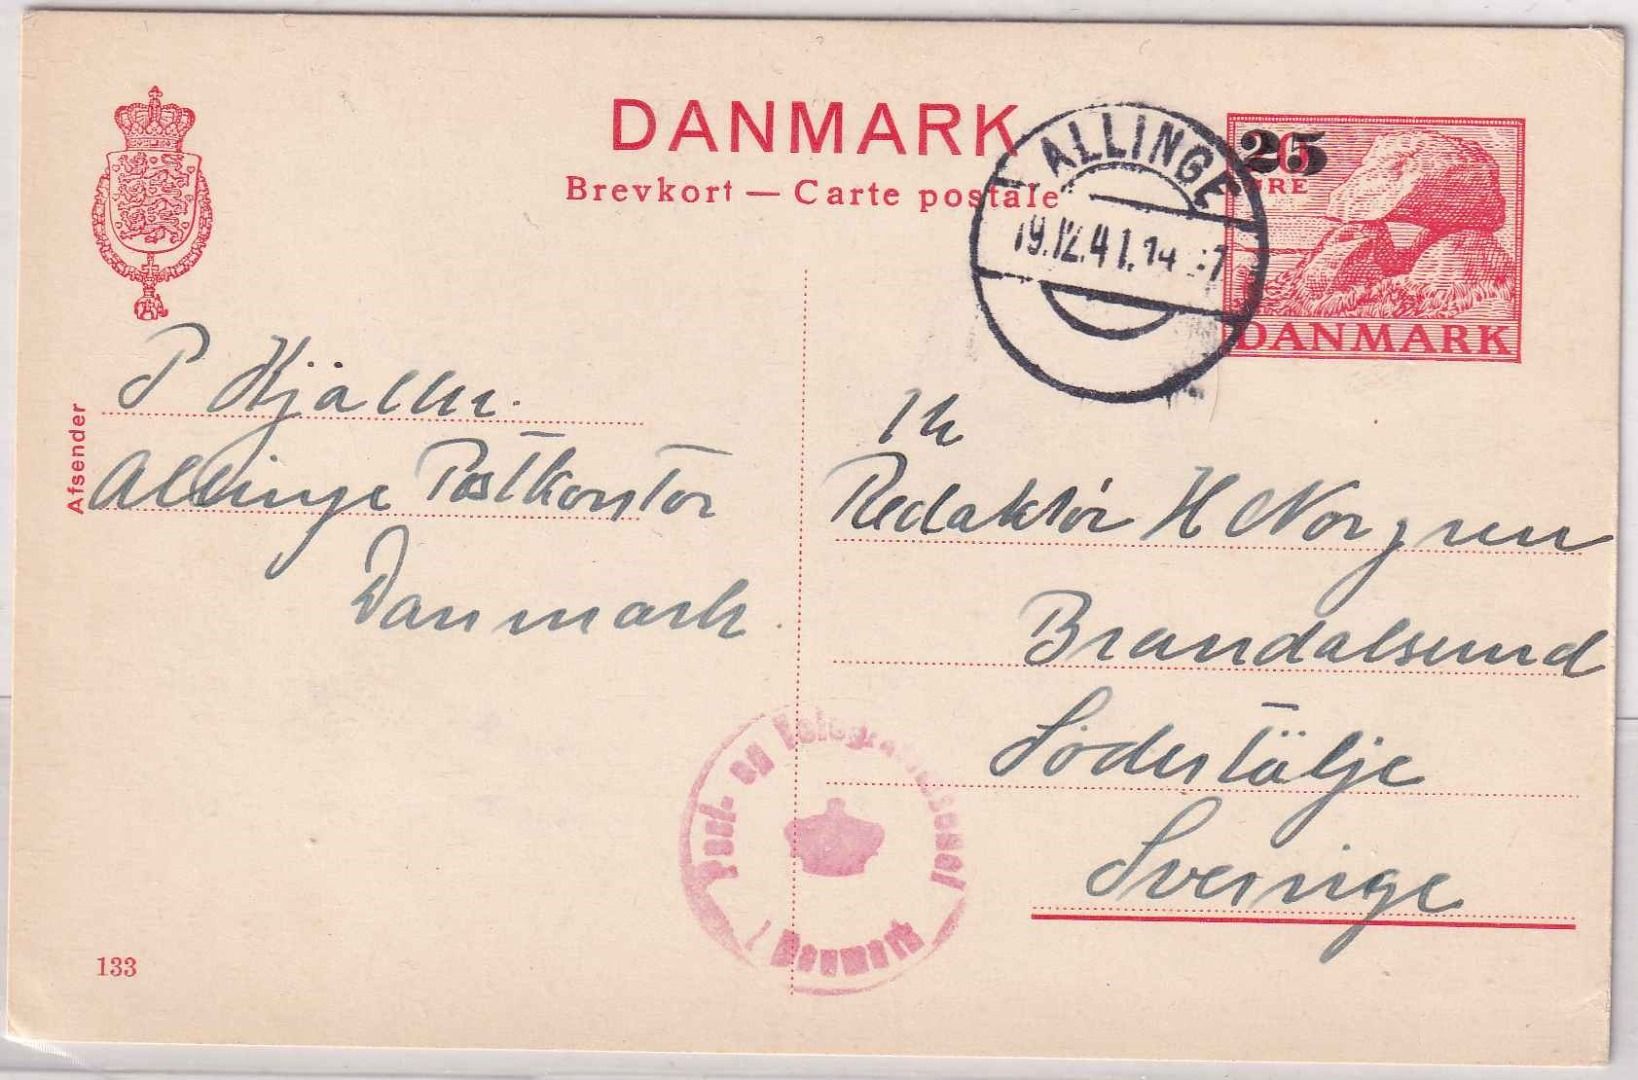 DANMARK
Brevkort — Carte postale
ALLINGE
19.12.41.14
25
ØRE
DANMARK
Afsender
P
Allinge Postkontor
Danmark.
Redaktör H Norgren
Brandalsund
Södertälje
Sverige
Post- og Telegrafvæsenet
Danmark
133